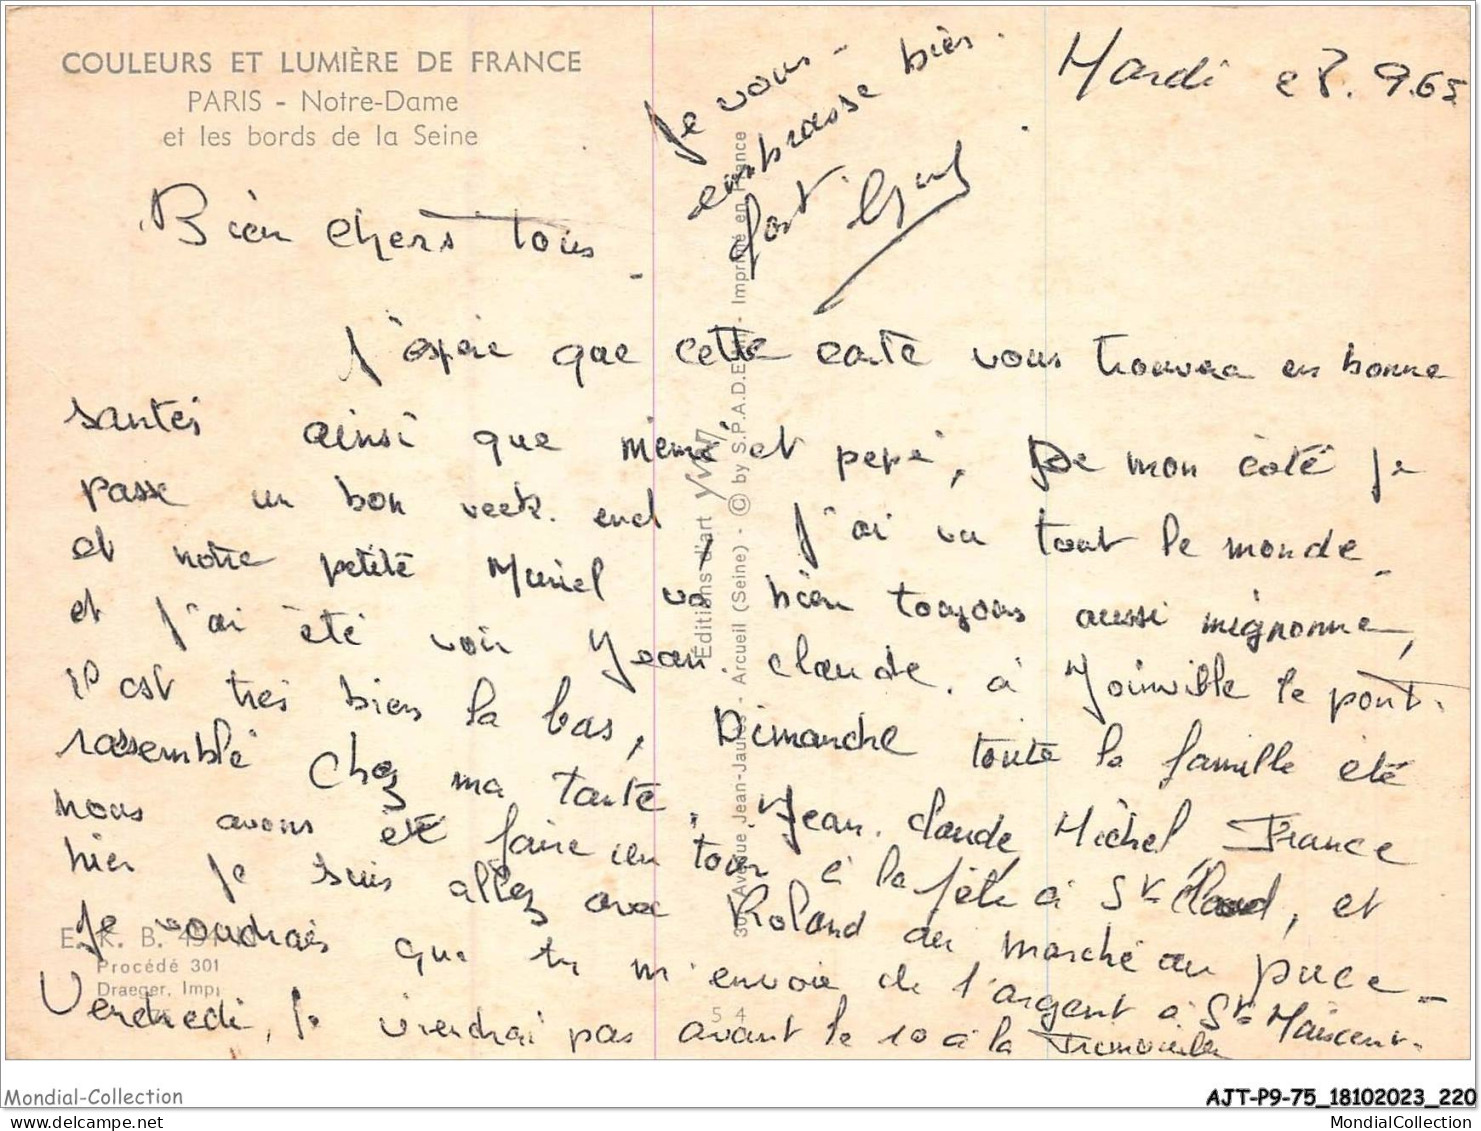 COULEURS ET LUMIÈRE DE FRANCE
PARIS - Notre-Dame
et les bords de la Seine
Mardi 28.9.65
Je vous
embrasse bien
fort
Bien chers tous -
J'espère que cette carte vous trouvera en bonne
santés ainsi que mémé et pépé, De mon côté je
passe un bon week. end, J'ai vu tout le monde -
et notre petite Muriel va bien toujours aussi mignonne,
et j'ai été voir Jean. claude. à Joinville le pont.
il est très bien la bas, Dimanche toute la famille été
rassemblé chez ma tante, Jean. claude, Michel, France
nous avons été faire un tour à la fête à St Cloud, et
hier je suis allez avec Roland au marché au puce -
Je voudrais que tu m'envoie de l'argent à St Maixent.
Vendredi, je viendrai pas avant le 10 à la
Éditions d'art YVON
30, Avenue Jean-Jaurès - Arcueil (Seine) - © by S.P.A.D.E.M. - Imprimé en France
E. K. B.
Procédé 301
Draeger, Imp.
5 4
Mondial-Collection
AJT-P9-75_18102023_220
MondialCollection